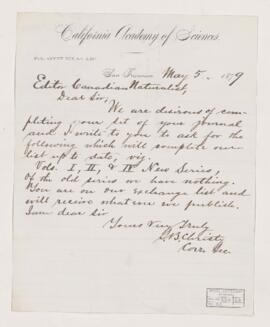 California Academy of Sciences
San Francisco, May 5. 1879
Editor Canadian Naturalist,
Dear Sir,
We are desirous of com-
pleting our set of your journal
and I write to you to ask for the
following which will complete our
list up to date, viz.
Vols. I, II, & IV New Series,
Of the old series we have nothing.
You are on our exchange list and
will receive what ever we publish.
I am dear Sir
Yours Very Truly
S. B. Christy
Corr. Sec.